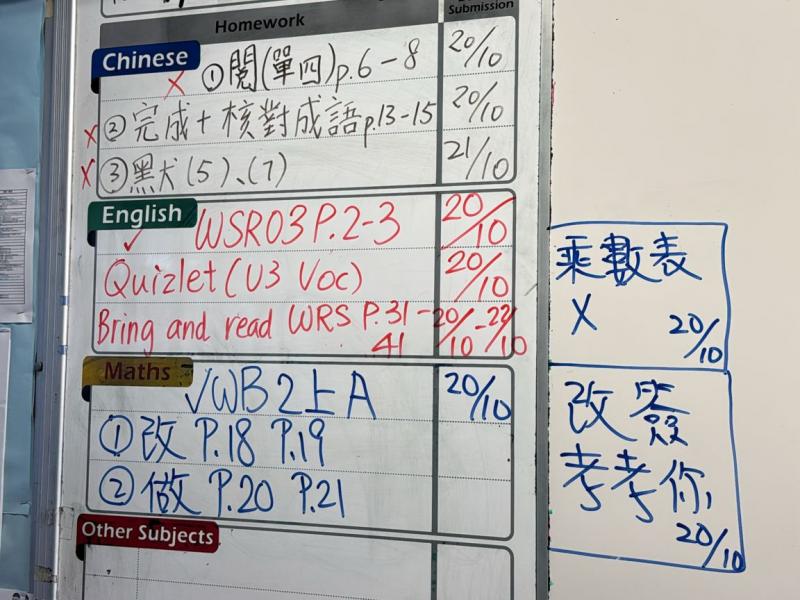 Homework
Submission
Chinese
× ①閱(單四)p.6-8 20/10
× ②完成+核對成語p.13-15 20/10
× ③黑犬(5)、(7) 21/10
English
✓ WSR03 P.2-3 20/10
Quizlet (U3 Voc) 20/10
Bring and read WRS P.31-41 20/10-22/10
Maths
✓WB2上A 20/10
①改 P.18 P.19
②做 P.20 P.21
Other Subjects
乘數表
× 20/10
改
考考你
20/10